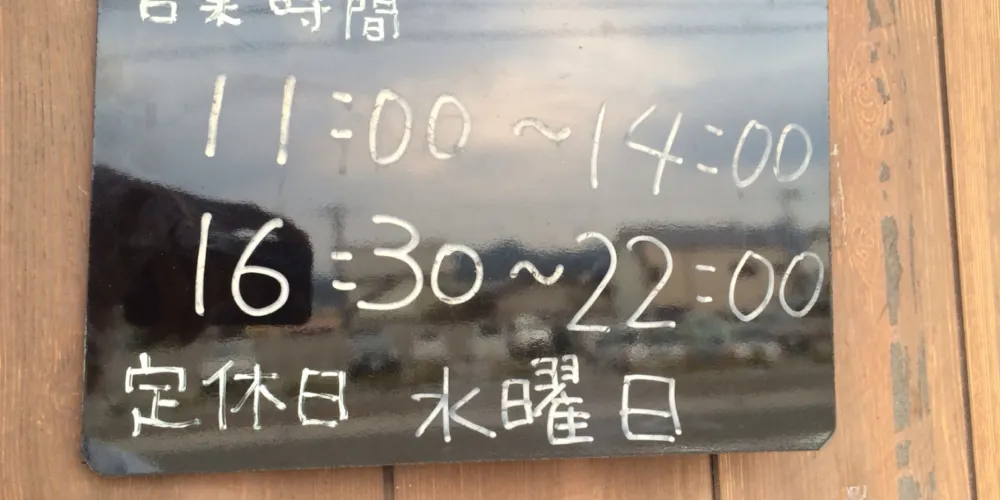 営業時間
11:00~14:00
16:30~22:00
定休日 水曜日